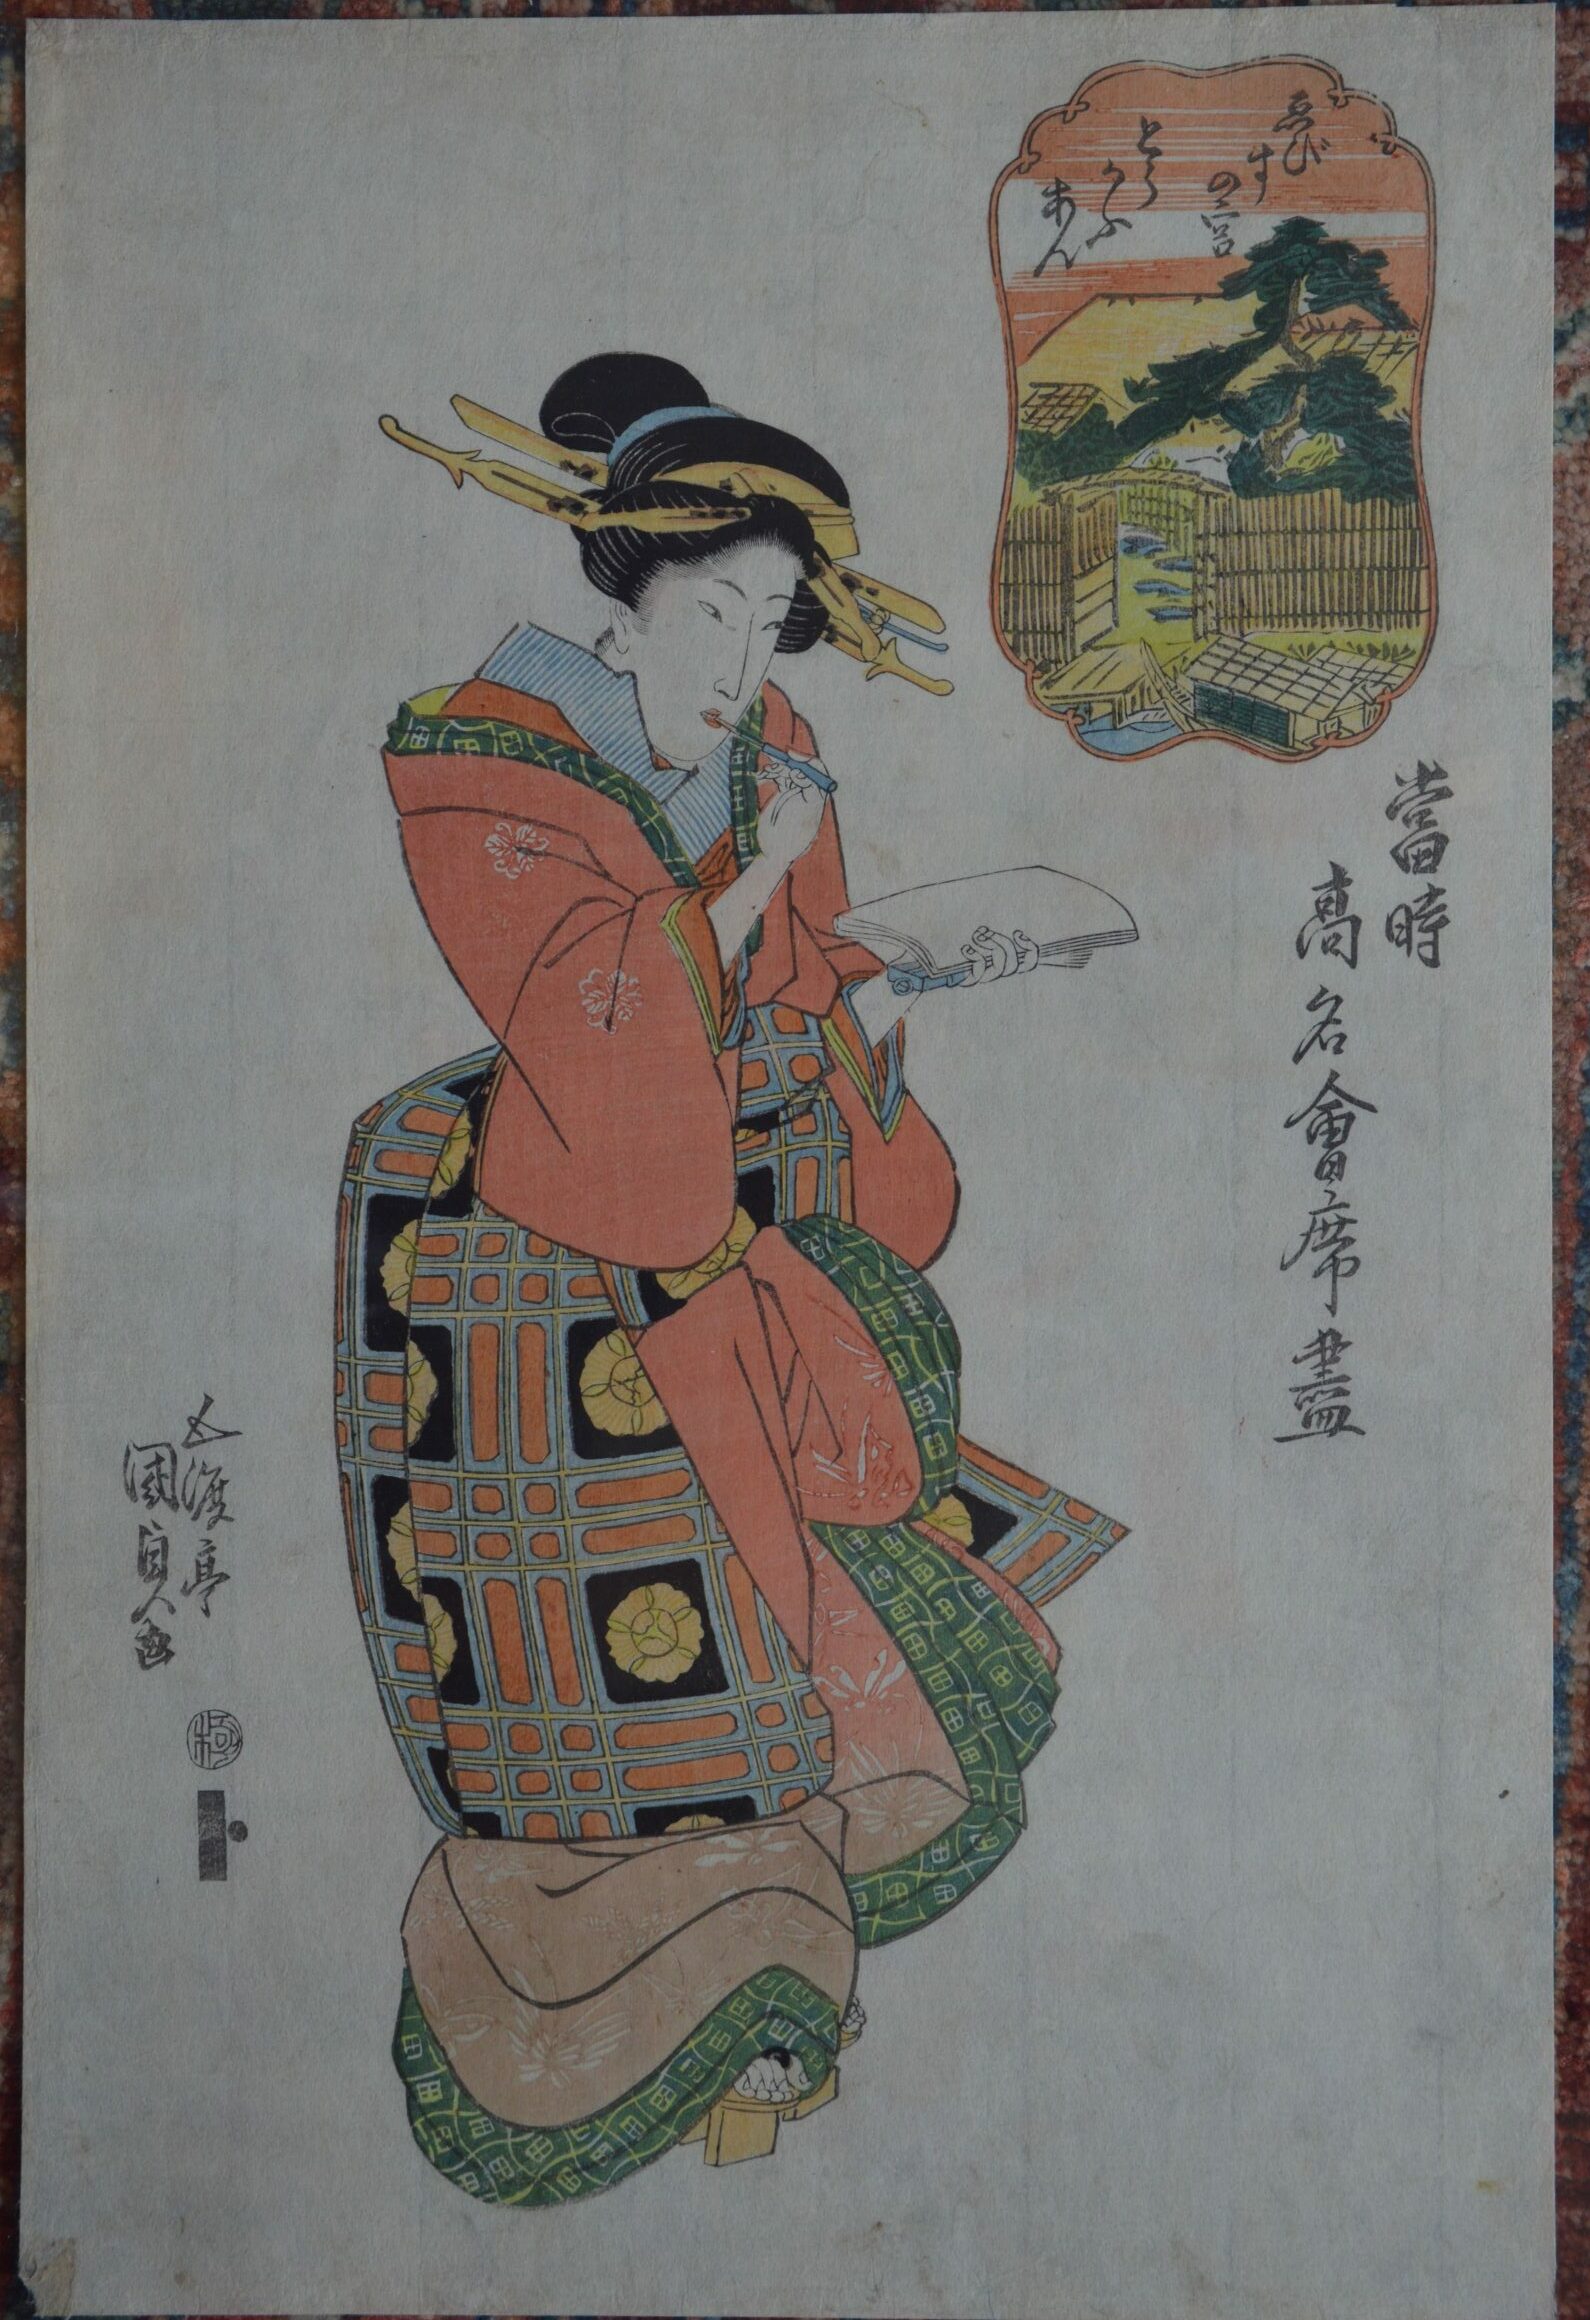 ゑび
すの宮
とら
かふ
あん
當時
高名會席盡
五渡亭
國貞画
極